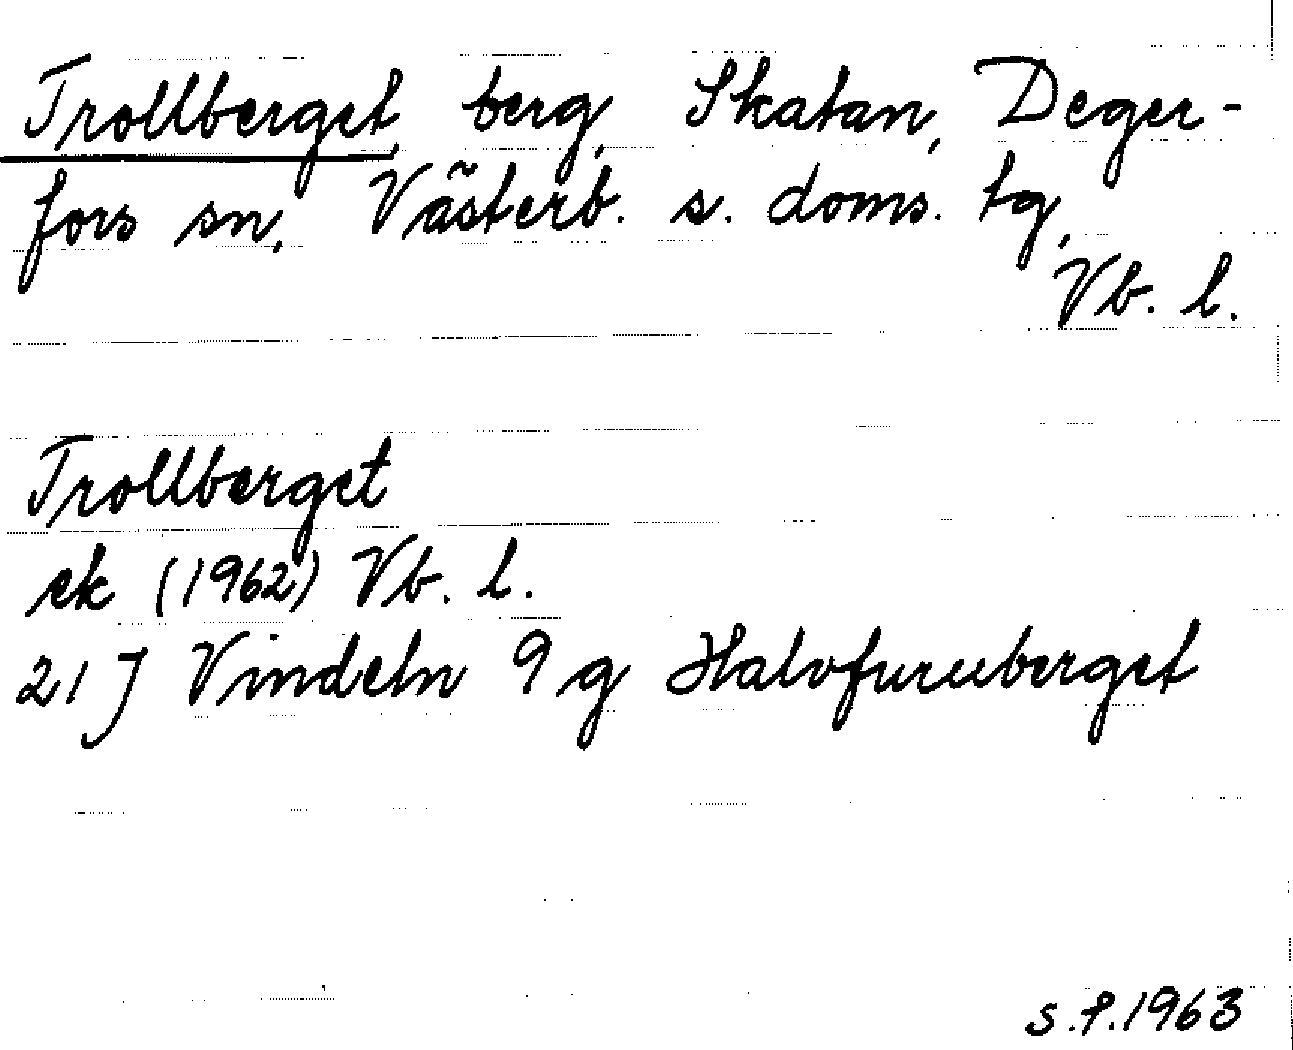 Trollberget, berg, Skatan, Deger-
fors sn, Västerb. s. doms. tg,
Vb. l.
Trollberget
ek (1962) Vb. l.
21 J Vindeln 9 g Halvfuruberget
s.f.1963